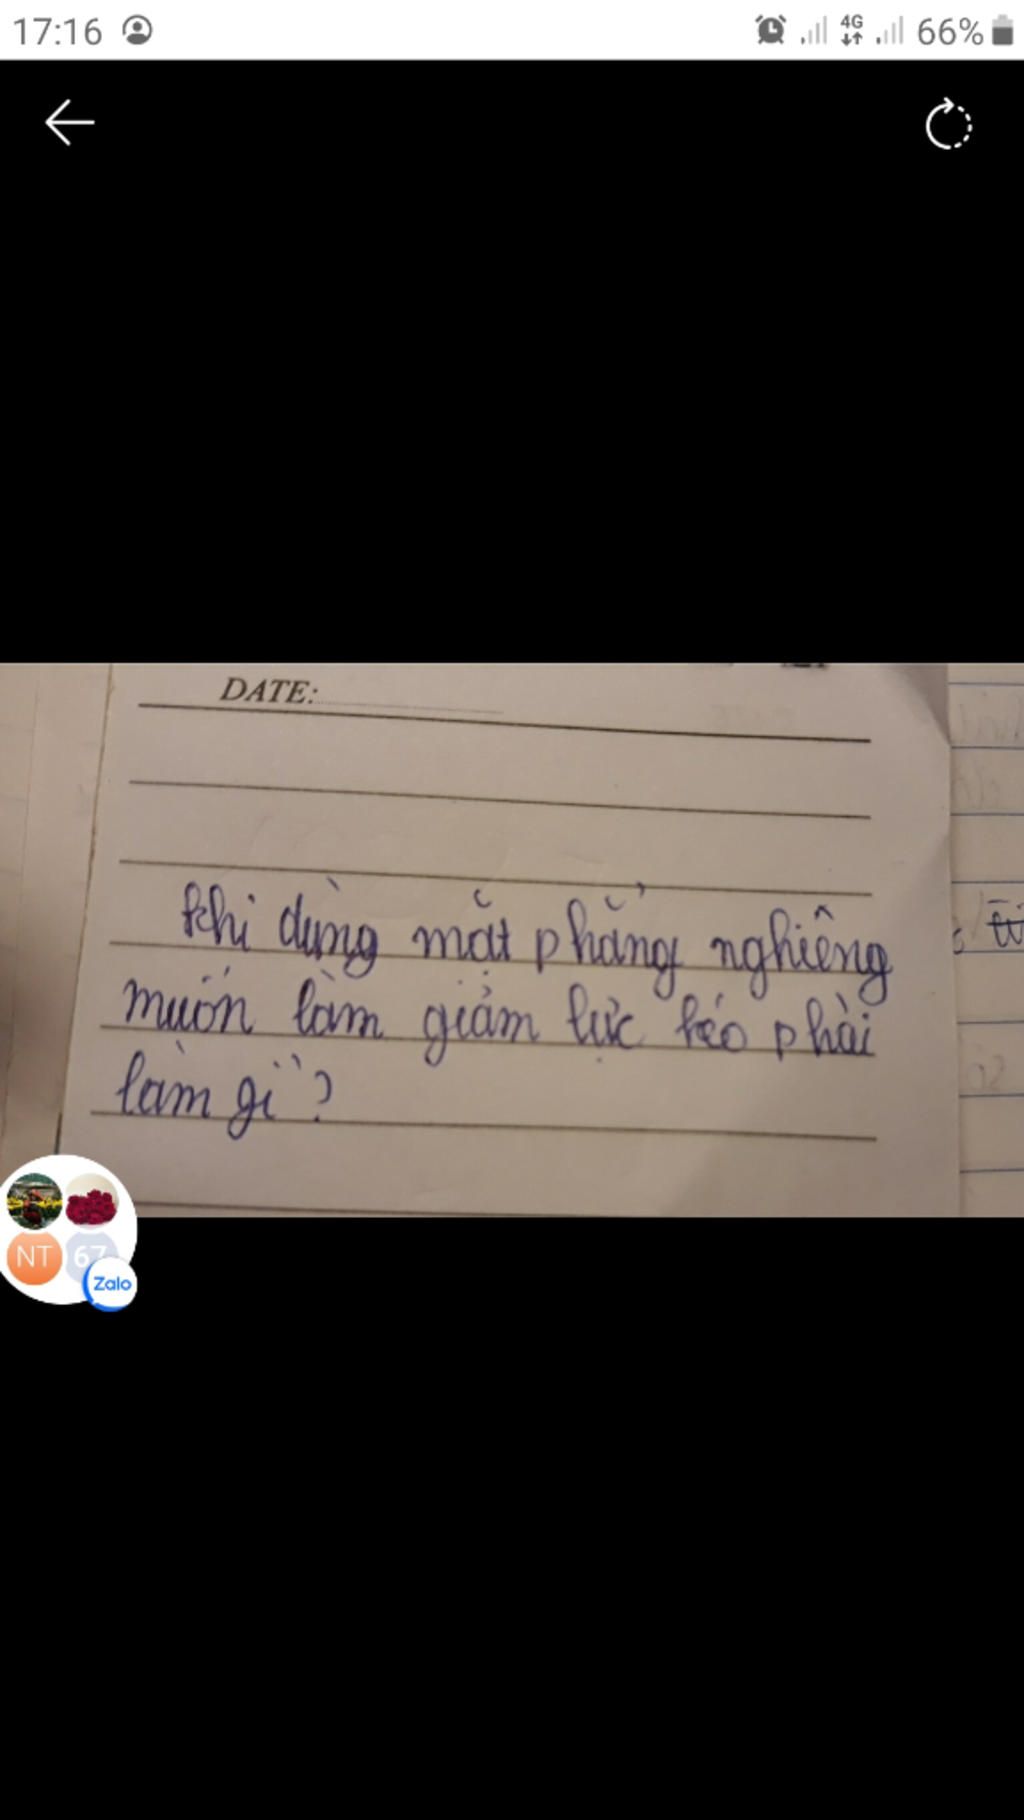 17:16
4G
66%
DATE:
Khi dùng mặt phẳng nghiêng
muốn làm giảm lực kéo phải
làm gì?
NT
67
Zalo